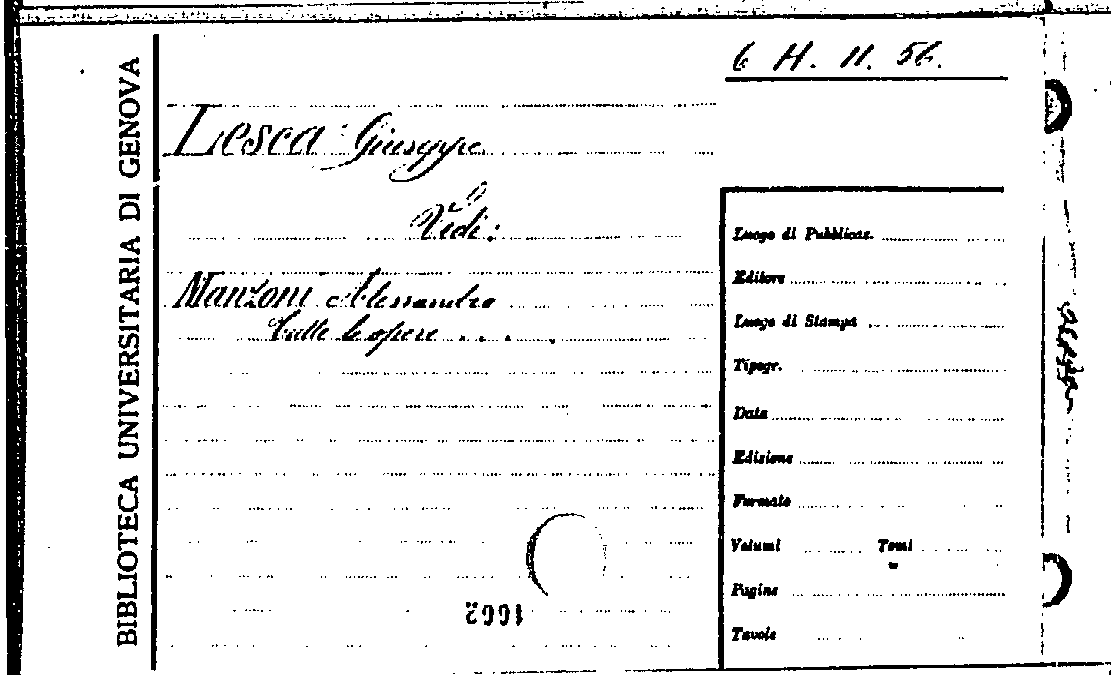 6 H. 11. 56.
BIBLIOTECA UNIVERSITARIA DI GENOVA
Lesca Giuseppe
Vedi:
Manzoni Alessandro
Tutte le opere . . . .
Luogo di Pubblicaz.
Editore
Luogo di Stampa
Tipogr.
Data
Edizione
Formato
Volumi Tomi
Pagine
Tavole